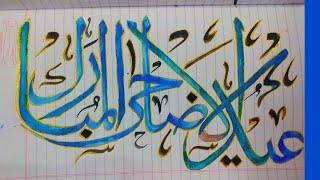 عيد الاضاحى المبارك